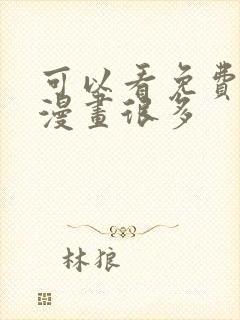 可以看免費
漫畫很多
林狼